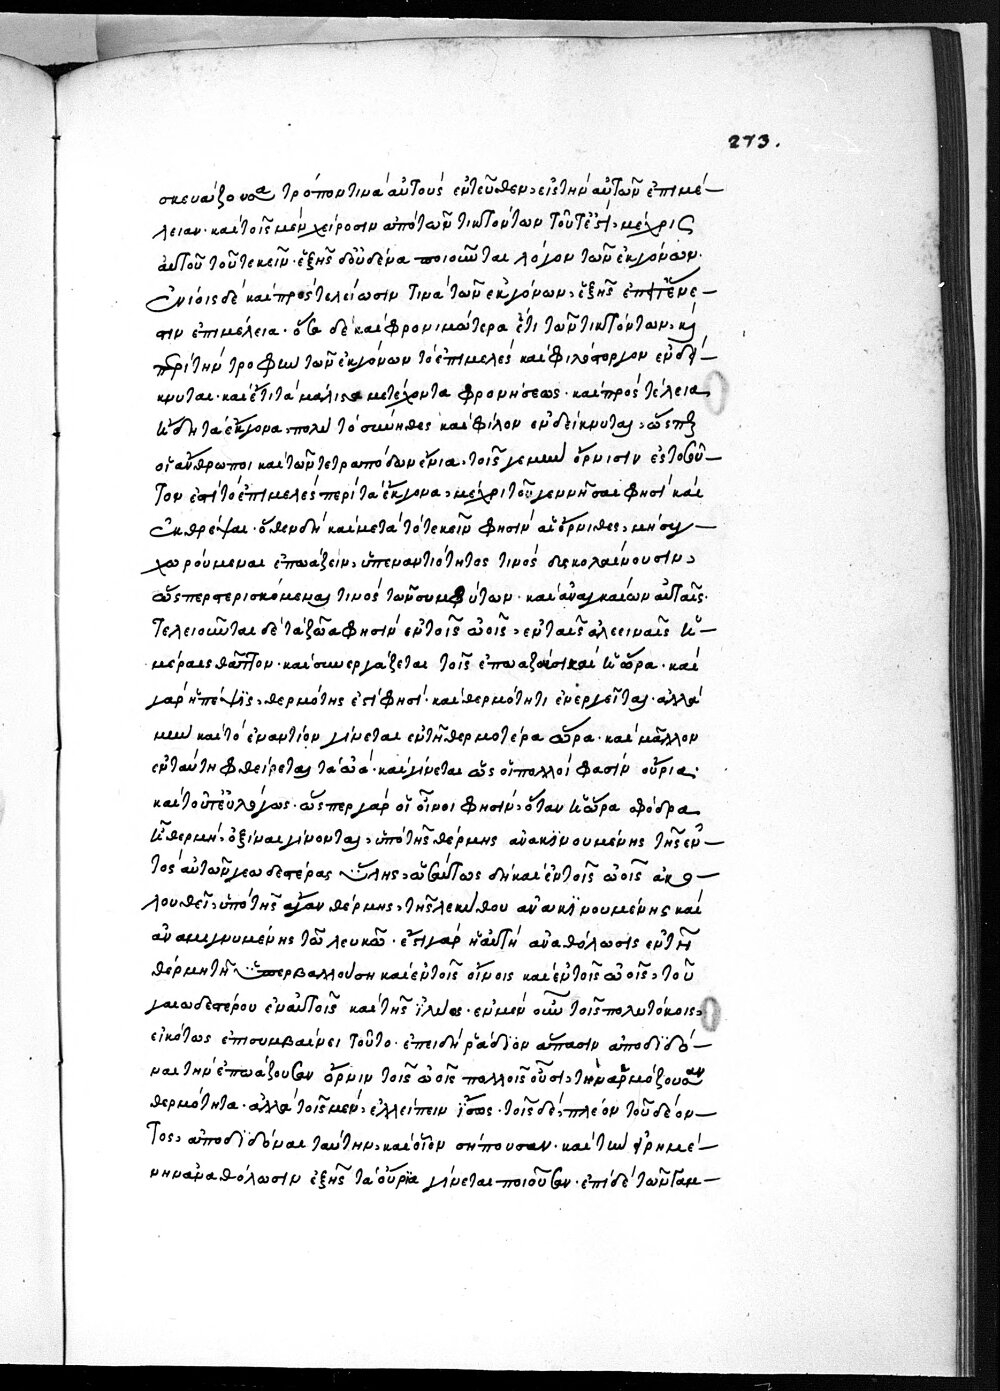 273.
σκευάζουσα τρόπον τινὰ αὐτοὺς ἐντεῦθεν, εἰς τὴν αὐτῶν ἐπιμέ-
λειαν. καὶ τοῖς μὲν χείροσιν ἀπὸ τῶν τικτόντων τοῦτέστι, μέχρις
αὐτοῦ τοῦ τεκεῖν. ἑξῆς δ' οὐδένα ποιοῦνται λόγον τῶν ἐκγόνων.
ἐνίοις δὲ καὶ πρὸς τελείωσιν τινὰ τῶν ἐκγόνων, ἑξῆς
σιν ἐπιμέλεια. ὅσα δὲ καὶ φρονιμώτερα ἔτι τῶν τικτόντων, καὶ
περὶ τὴν τροφὴν τῶν ἐκγόνων τὸ ἐπιμελὲς καὶ φιλόστοργον ἐνδεί-
κνυται. καὶ ἔτι τὰ μάλιστα μετέχοντα φρονήσεως. καὶ πρὸς τέλεια
ἤδη τὰ ἔκγονα, πολὺ τὸ σύνηθες καὶ φίλον ἐνδείκνυται, ὥσπερ
οἱ ἄνθρωποι καὶ τῶν τετραπόδων ἔνια, τοῖς γε μὴν ὄρνισιν ἐς τοσοῦ-
τον ἐστὶ τὸ ἐπιμελὲς περὶ τὰ ἔκγονα, μέχρι τοῦ γεννῆσαι φησὶ καὶ
ἐκθρέψαι. ὅθεν δὴ καὶ μετὰ τὸ τεκεῖν φησὶν αἱ ὄρνιθες, μὴ συγ-
χωρούμεναι ἐπωάζειν, ὑπεναντιότητος τινὸς δυσκολαίνουσιν,
ὥσπερ στερισκόμεναι τινὸς τῶν συμφύτων. καὶ ἀναγκαίων αὐταῖς.
τελειοῦνται δὲ τὰ ζῶα φησὶν ἐν τοῖς ὠοῖς, ἐν ταῖς ἀλεειναῖς ἡ-
μέραις θᾶττον. καὶ συνεργάζεται τοῖς ἐπωάζουσι καὶ ἡ ὥρα. καὶ
γὰρ ἡ πέψϊς, θερμότης ἐστὶ φησί. καὶ θερμότητι ἐνεργεῖται. ἀλλὰ
μὴν καὶ τὸ ἐναντίον γίνεται ἐν τῇ θερμοτέρα ὥρα. καὶ μᾶλλον
ἐν ταύτη φθείρεται τὰ ὠά. καὶ γίνεται ὡς οἱ πολλοὶ φασὶν οὔρια.
καὶ τοῦτ' εὐλόγως. ὥσπερ γὰρ οἱ οἶνοι φησὶν, ὅταν ἡ ὥρα σφόδρα
ἦ θερμὴ, ὀξίναι γίνονται, ὑπὸ τῆς θέρμης ἀνακϊνουμένης τῆς ἐν-
τὸς αὐτῶν γεωδεστέρας ὕλης, ὡσαύτως δὴ καὶ ἐν τοῖς ὠοῖς ἀκο-
λουθεῖ, ὑπὸ τῆς ἄγαν θέρμης, τῆς λεκύθου ἀνακϊνουμένης καὶ
ἀναμιγνυμένης τῶ λευκῶ. ἔστι γὰρ ἡ αὐτὴ ἀναθόλωσις ἐν τῆ
θέρμη τῆ ὑπερβαλλούση καὶ ἐν τοῖς οἴνοις καὶ ἐν τοῖς ὠοῖς, τοῦ
γαιωδεστέρου ἐν αὐτοῖς καὶ τῆς ἰλύος. ἐν μὲν οὖν τοῖς πολυτόκοις,
εἰκότως ἐπισυμβαίνει τοῦτο. ἐπειδὴ ῥάδϊον ἅπασιν ἀποδϊδό-
ναι τὴν ἐπωάζουσαν ὄρνιν τοῖς ὠοῖς πολλοῖς οὖσι, τὴν ἁρμόζουσαν
θερμότητα. ἀλλὰ τοῖς μὲν, ἐλλείπειν ἴσως. τοῖς δὲ, πλέον τοῦ δέον-
τος, ἀποδϊδόναι ταύτην, καὶ οἷον σήπουσαν. καὶ τὴν εἰρημέ-
νην ἀναθόλωσιν ἐξ ἧς τὰ οὔρϊα γίνεται ποιοῦσαν. ἐπὶ δὲ τῶν γαμ-